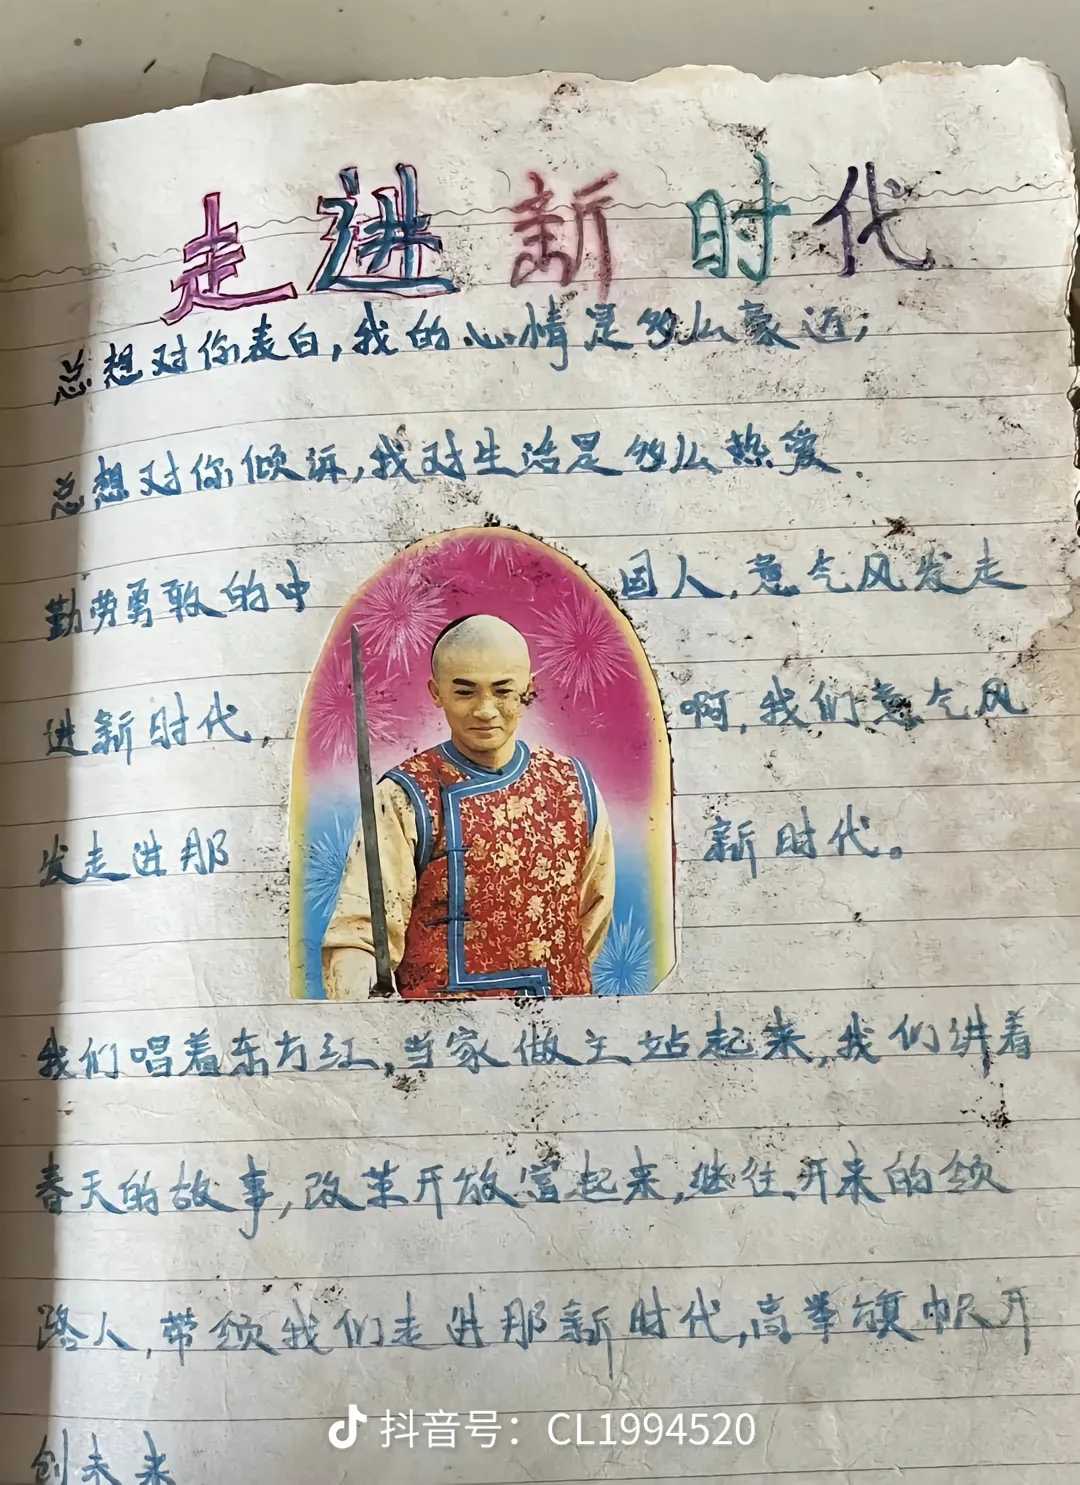 走进新时代
总想对你表白，我的心情是多么豪迈；
总想对你倾诉，我对生活是多么热爱.
勤劳勇敢的中国人，意气风发走
进新时代，啊，我们意气风
发走进那新时代。
我们唱着东方红，当家做主站起来，我们讲着
春天的故事，改革开放富起来，继往开来的领
路人，带领我们走进那新时代，高举旗帜开
创未来
抖音号：CL1994520